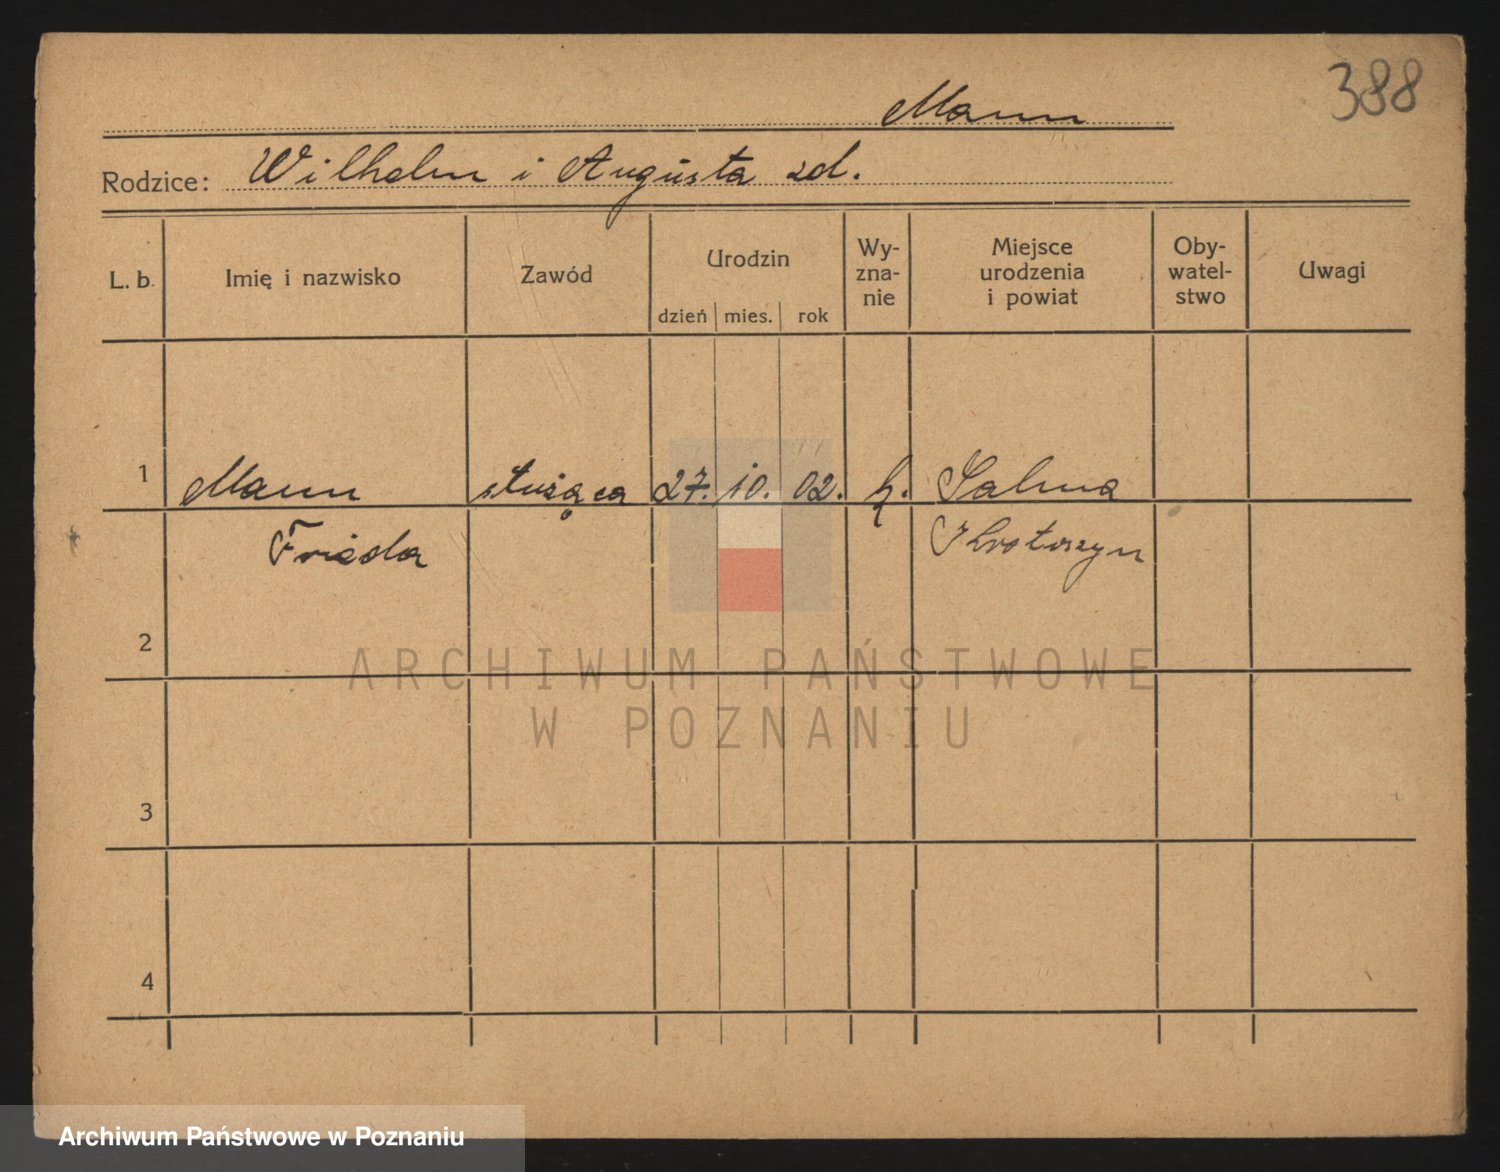 388
Mann
Rodzice: Wilhelm i Augusta zd.
L. b. Imię i nazwisko Zawód Urodzin Wy-zna-nie Miejsce urodzenia i powiat Oby-watel-stwo Uwagi
dzień mies. rok
1 Mann służąca 27. 10. 02. Salnia
Frieda Krotoszyn
2
ARCHIWUM PAŃSTWOWE
W POZNANIU
3
4
Archiwum Państwowe w Poznaniu